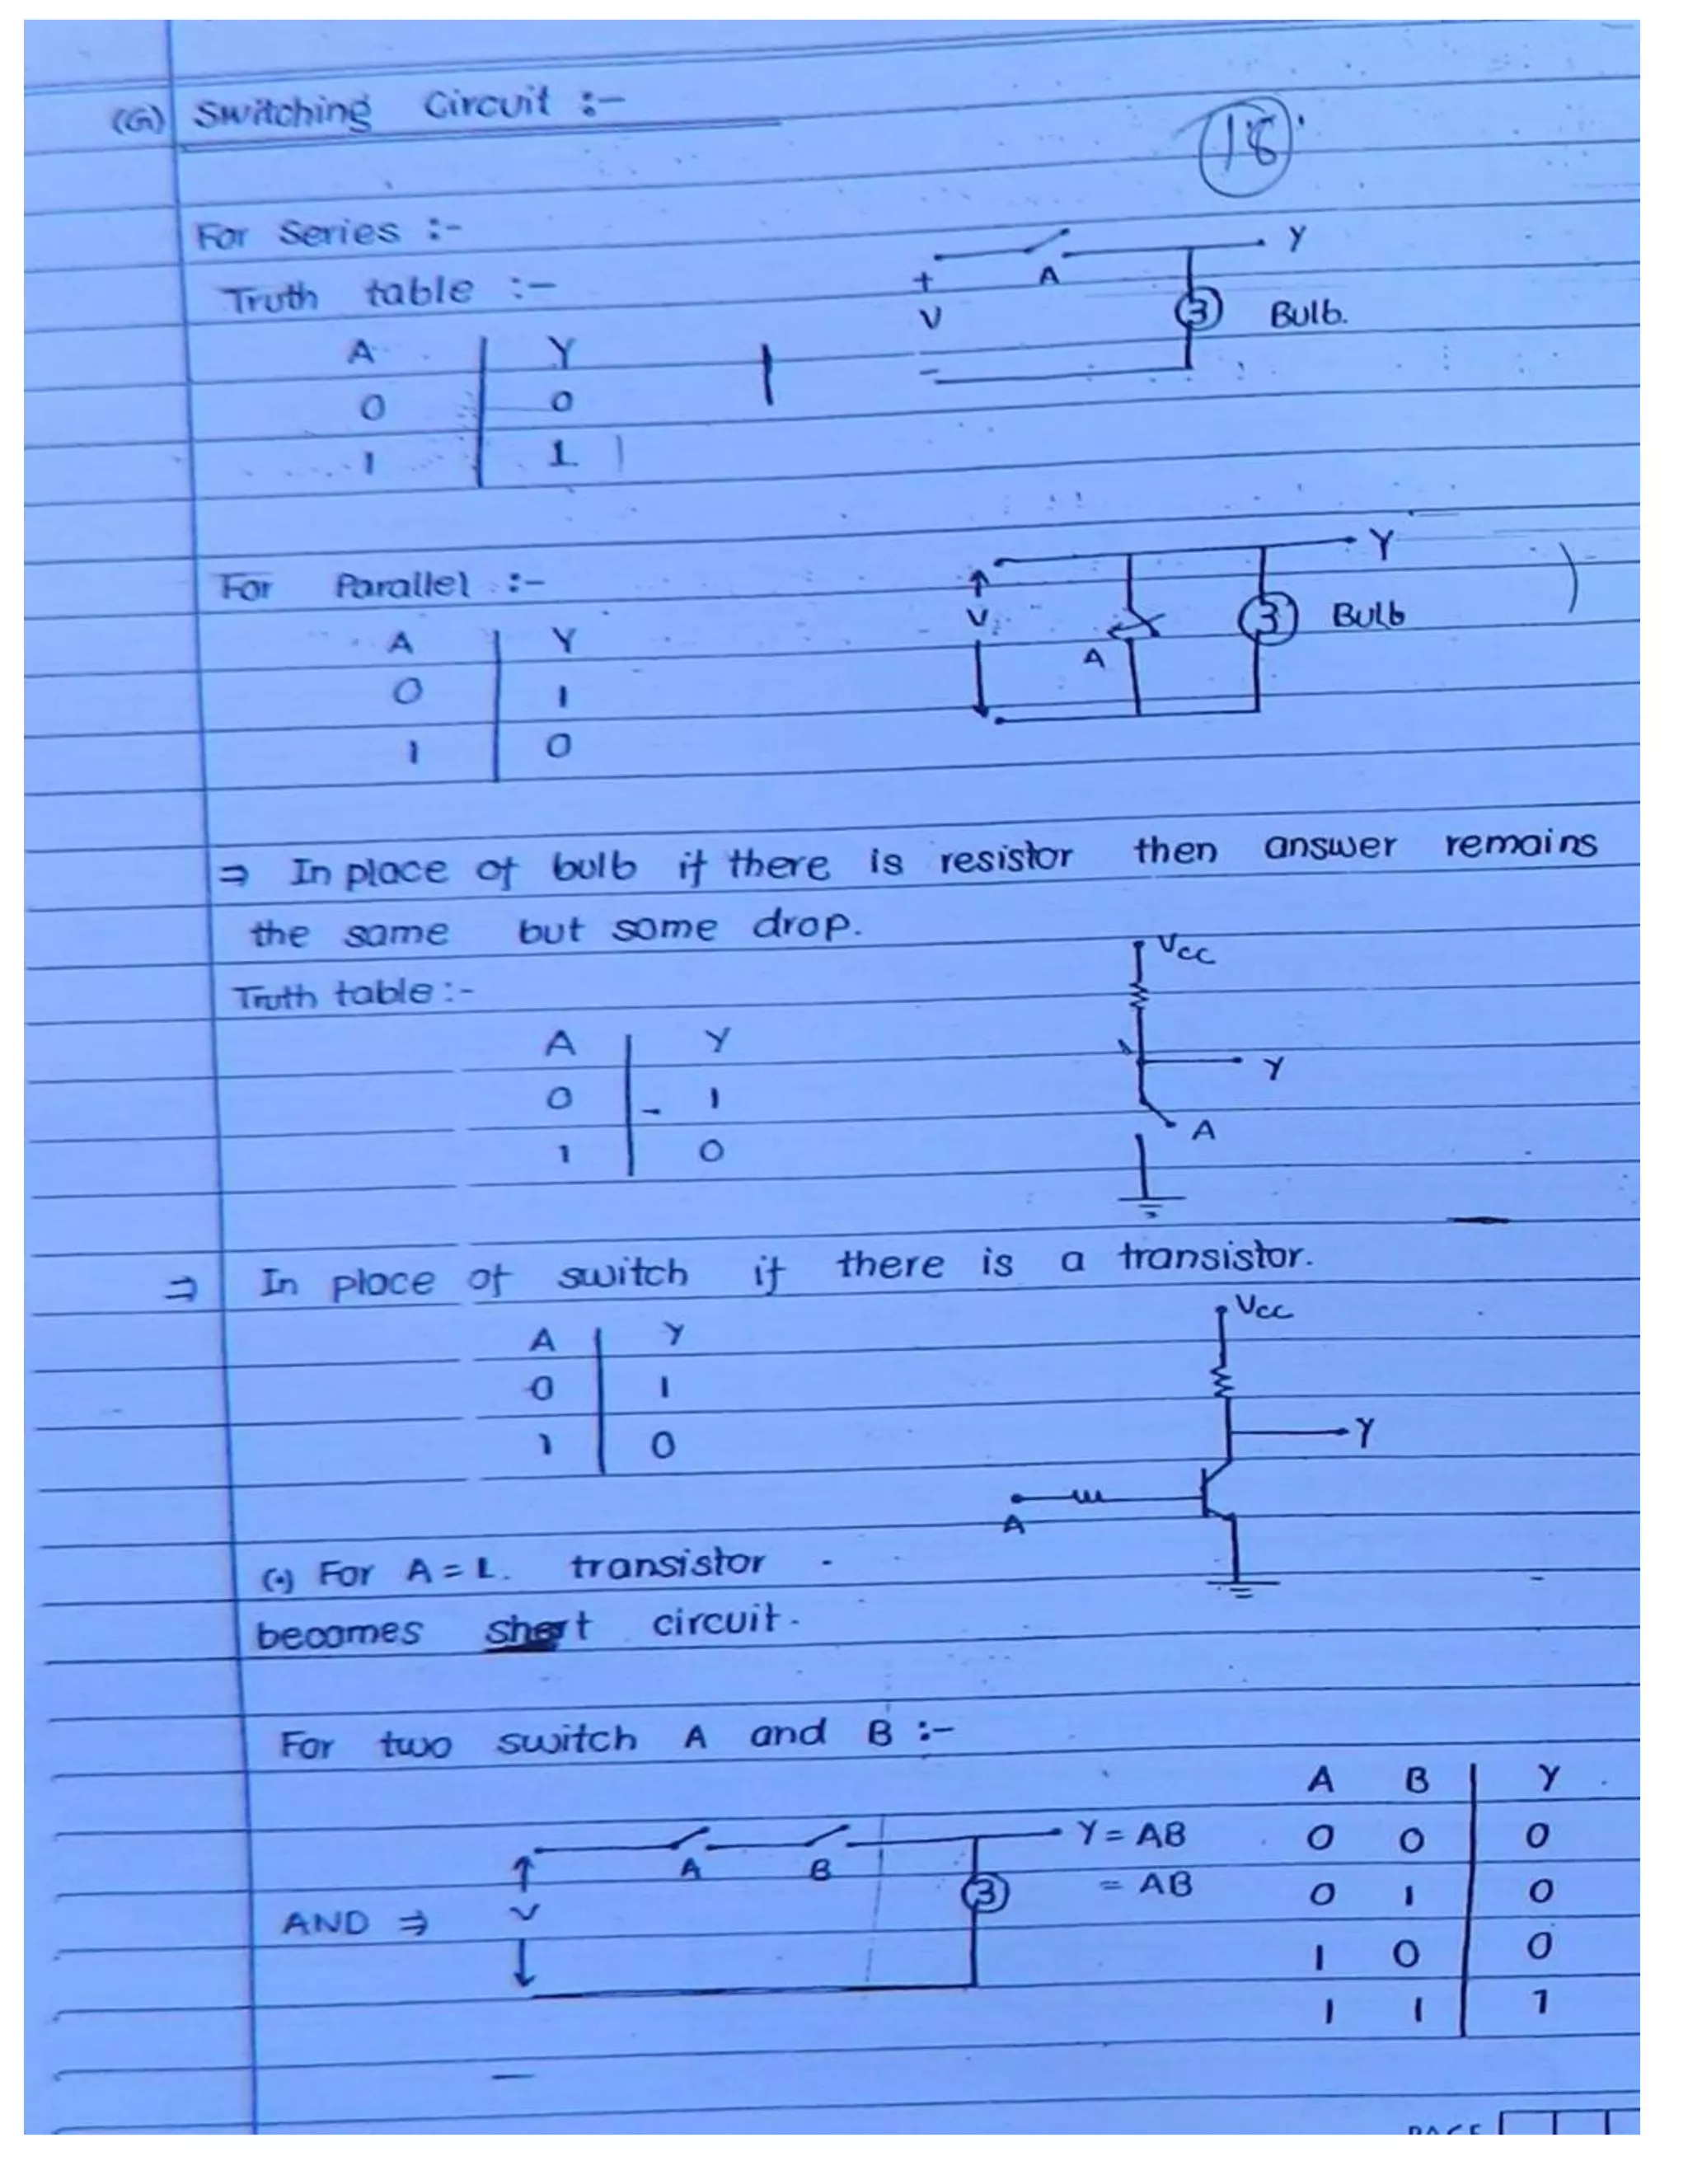 (G) Switching Circuit :-
18
For Series :-
Y
Truth table :-
+ A
V
Bulb.
-
A Y
0 0
1 1
For Parallel :-
Y
V
Bulb
A
A Y
0 1
1 0
⇒ In place of bulb if there is resistor then answer remains
the same but some drop.
Vcc
Truth table :-
A Y
0 - 1
1 0
Y
A
⇒ In place of switch if there is a transistor.
Vcc
A Y
0 1
1 0
Y
A
(•) For A = 1. transistor
becomes short circuit.
For two switch A and B :-
A B Y
0 0 0
0 1 0
1 0 0
1 1 1
A B
Y = AB
= AB
AND ⇒
V